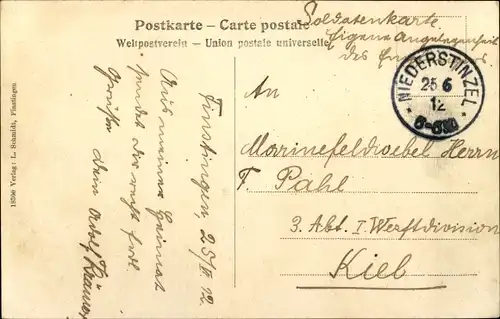 Postkarte – Carte postale
Weltpostverein – Union postale universelle
Soldatenkarte
Eigene Angelegenheit
des
NIEDERSTINZEL
25 6
12
Finstingen, 25/VI. 12.
Aus meiner Heimat
sendet dir recht frdl.
Grüße Dein Adolf Krämer
An
Marinefeldwebel Herrn
F. Pahl
3. Abt. I. Werftdivision
Kiel
18590 Verlag: L. Schmidt, Finstingen